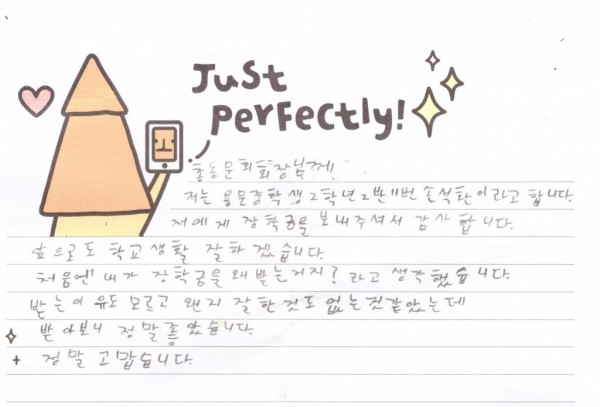 Just
Perfectly!
총동문회회장님께!
저는 용문중학생 2학년 2반 11번 손석환이라고 합니다.
저에게 장학금을 보내주셔서 감사합니다.
앞으로도 학교생활 잘하겠습니다.
처음엔 내가 장학금을 왜 받는거지? 라고 생각했습니다.
받는이유도 모르고 왠지 잘한것도 없는것같았는데
받아보니 정말좋았습니다.
정말 고맙습니다.